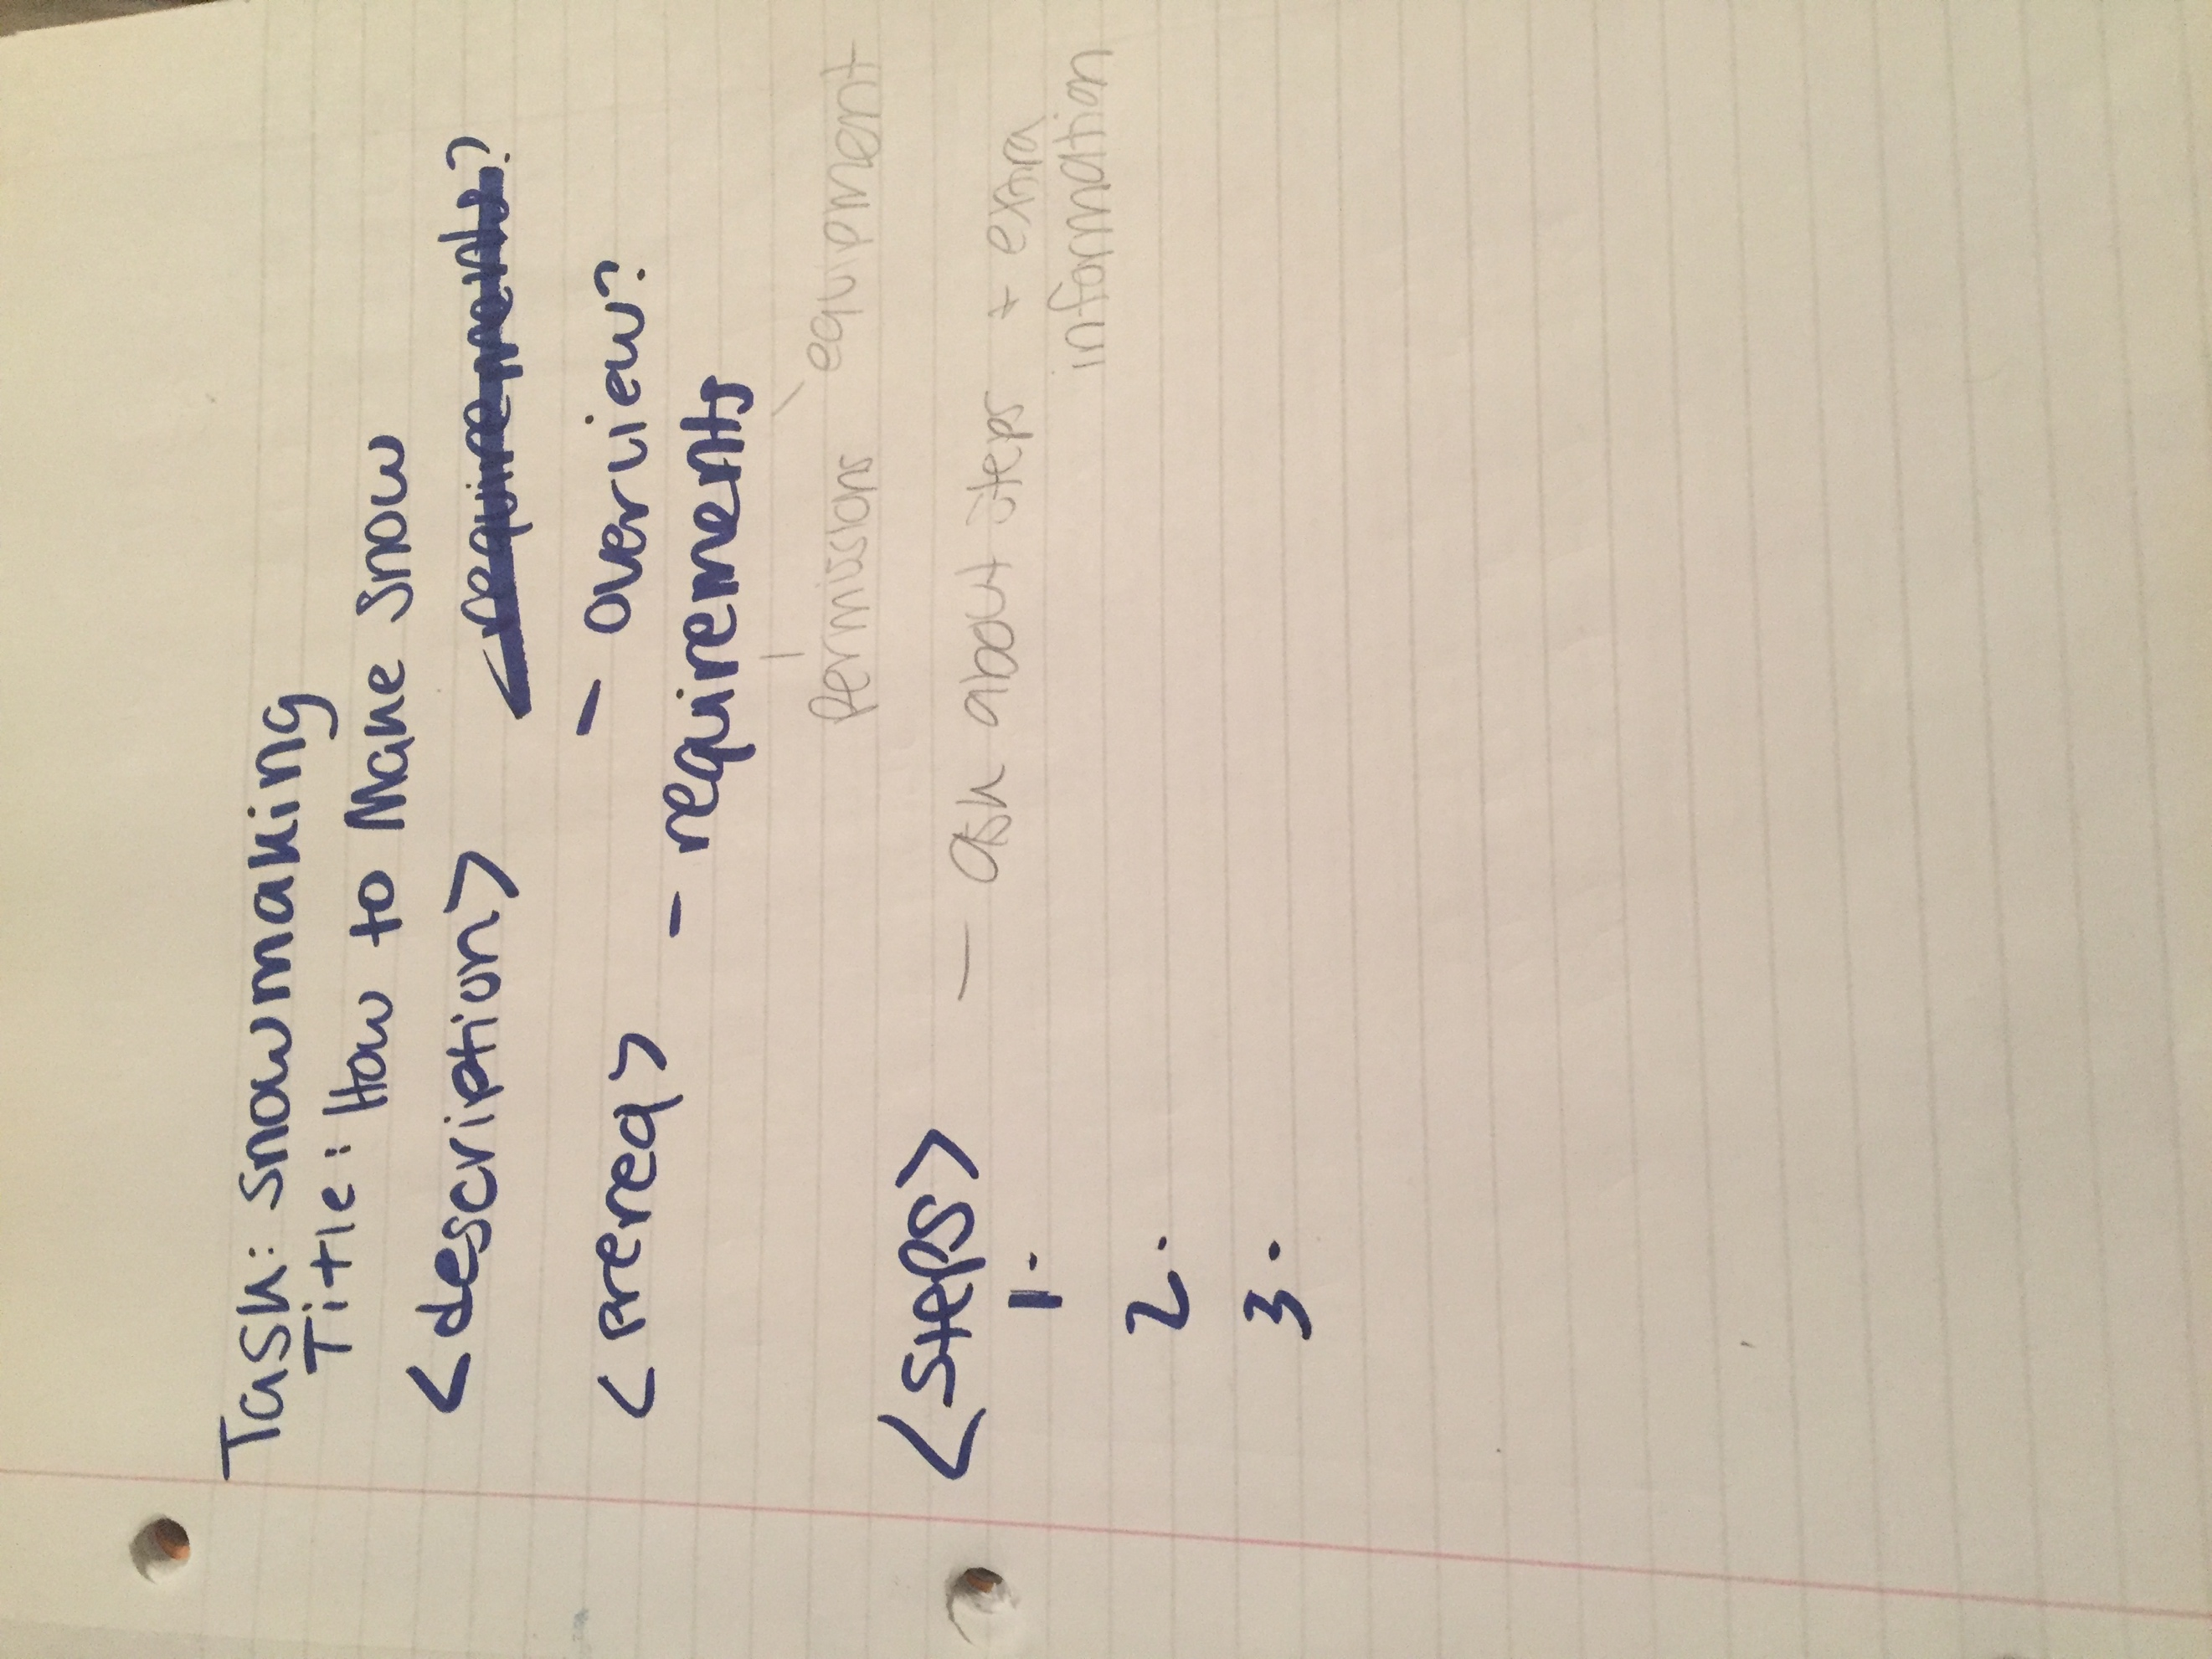 Task: snowmaking
Title: How to Make Snow
<description> requirements?
- overview?
<prereq> - requirements
Permissions equipment
<steps> - ask about steps + extra
information
1.
2.
3.